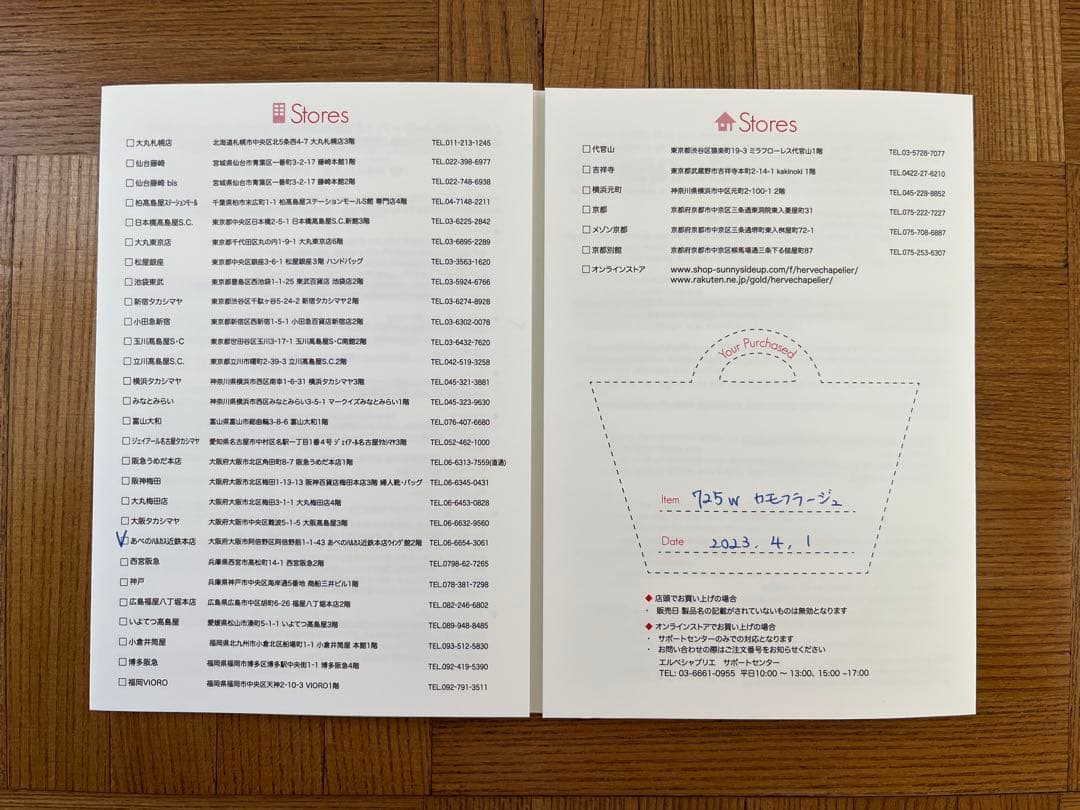 Stores
大丸札幌店 北海道札幌市中央区北5条西4-7 大丸札幌店3階 TEL.011-213-1245
仙台藤崎 宮城県仙台市青葉区一番町3-2-17 藤崎本館1階 TEL.022-398-6977
仙台藤崎 bis 宮城県仙台市青葉区一番町3-2-17 藤崎本館2階 TEL.022-748-6938
柏高島屋ステーションモール 千葉県柏市末広町1-1 柏高島屋ステーションモールS館 専門店4階 TEL.04-7148-2211
日本橋高島屋S.C. 東京都中央区日本橋2-5-1 日本橋高島屋S.C.新館3階 TEL.03-6225-2842
大丸東京店 東京都千代田区丸の内1-9-1 大丸東京店6階 TEL.03-6895-2289
松屋銀座 東京都中央区銀座3-6-1 松屋銀座3階 ハンドバッグ TEL.03-3563-1620
池袋東武 東京都豊島区西池袋1-1-25 東武百貨店 池袋店2階 TEL.03-5924-6766
新宿タカシマヤ 東京都渋谷区千駄ヶ谷5-24-2 新宿タカシマヤ2階 TEL.03-6274-8928
小田急新宿 東京都新宿区西新宿1-5-1 小田急百貨店新宿店2階 TEL.03-6302-0078
玉川髙島屋S・C 東京都世田谷区玉川3-17-1 玉川髙島屋S・C南館2階 TEL.03-6432-7620
立川髙島屋S.C. 東京都立川市曙町2-39-3 立川髙島屋S.C.2階 TEL.042-519-3258
横浜タカシマヤ 神奈川県横浜市西区南幸1-6-31 横浜タカシマヤ3階 TEL.045-321-3881
みなとみらい 神奈川県横浜市西区みなとみらい3-5-1 マークイズみなとみらい1階 TEL.045-323-9630
富山大和 富山県富山市総曲輪3-8-6 富山大和1階 TEL.076-407-6680
ジェイアール名古屋タカシマヤ 愛知県名古屋市中村区名駅一丁目1番4号 ジェイアール名古屋タカシマヤ3階 TEL.052-462-1000
阪急うめだ本店 大阪府大阪市北区角田町8-7 阪急うめだ本店1階 TEL.06-6313-7559(直通)
阪神梅田 大阪府大阪市北区梅田1-13-13 阪神百貨店梅田本店3階 婦人靴・バッグ TEL.06-6345-0431
大丸梅田店 大阪府大阪市北区梅田3-1-1 大丸梅田店4階 TEL.06-6453-0828
大阪タカシマヤ 大阪府大阪市中央区難波5-1-5 大阪髙島屋3階 TEL.06-6632-9560
あべのハルカス近鉄本店 大阪府大阪市阿倍野区阿倍野筋1-1-43 あべのハルカス近鉄本店ウイング館2階 TEL.06-6654-3061
西宮阪急 兵庫県西宮市高松町14-1 西宮阪急2階 TEL.0798-62-7265
神戸 兵庫県神戸市中央区海岸通5番地 商船三井ビル1階 TEL.078-381-7298
広島福屋八丁堀本店 広島県広島市中区胡町6-26 福屋八丁堀本店2階 TEL.082-246-6802
いよてつ髙島屋 愛媛県松山市湊町5-1-1 いよてつ髙島屋3階 TEL.089-948-8485
小倉井筒屋 福岡県北九州市小倉北区船場町1-1 小倉井筒屋 本館1階 TEL.093-512-5830
博多阪急 福岡県福岡市博多区博多駅中央街1-1 博多阪急4階 TEL.092-419-5390
福岡VIORO 福岡県福岡市中央区天神2-10-3 VIORO1階 TEL.092-791-3511
Stores
代官山 東京都渋谷区猿楽町19-3 ミラフローレス代官山1階 TEL.03-5728-7077
吉祥寺 東京都武蔵野市吉祥寺本町2-14-1 kakinoki 1階 TEL.0422-27-6210
横浜元町 神奈川県横浜市中区元町2-100-1 2階 TEL.045-228-8852
京都 京都府京都市中京区三条通東洞院東入菱屋町31 TEL.075-222-7227
メゾン京都 京都府京都市中京区三条通堺町東入桝屋町72-1 TEL.075-708-6887
京都別館 京都府京都市中京区柳馬場通三条下る槌屋町87 TEL.075-253-6307
オンラインストア www.shop-sunnysideup.com/f/hervechapelier/
www.rakuten.ne.jp/gold/hervechapelier/
Your Purchased
Item 725W カモフラージュ
Date 2023. 4. 1
◆ 店頭でお買い上げの場合
・ 販売日 製品名の記載がされていないものは無効となります
◆ オンラインストアでお買い上げの場合
・ サポートセンターのみでの対応となります
・ お問い合わせの際はご注文番号をお知らせください
エルベシャプリエ サポートセンター
TEL: 03-6661-0955 平日10:00 〜 13:00、15:00 -17:00